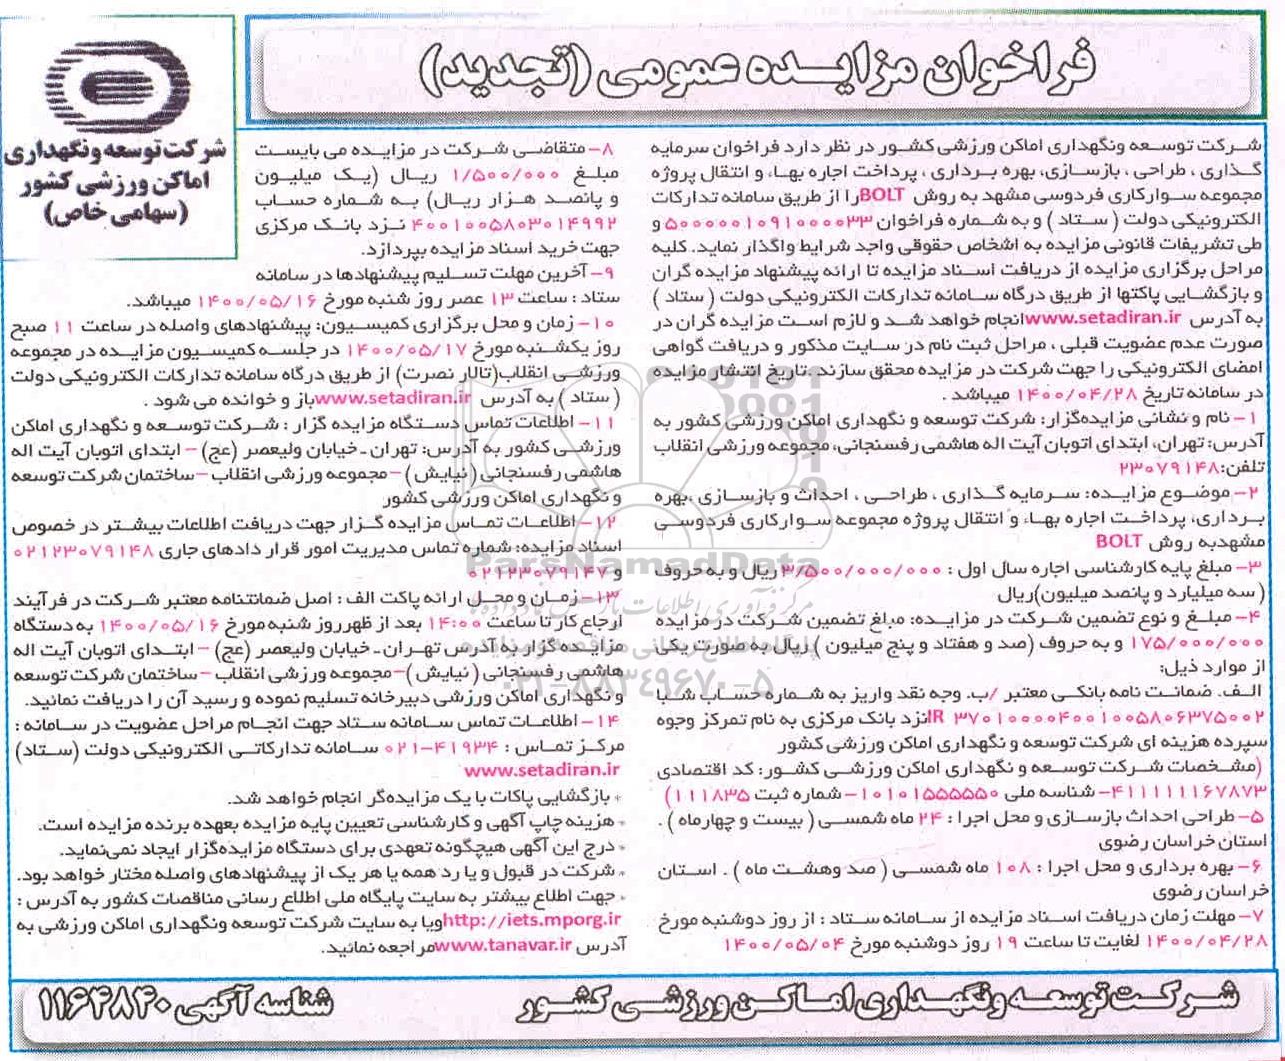 فراخوان مزایده عمومی (تجدید)
شرکت توسعه و نگهداری
اماکن ورزشی کشور
(سهامی خاص)
شرکت توسعه ونگهداری اماکن ورزشی کشور در نظر دارد فراخوان سرمایه
گذاری ، طراحی ، بازسازی، بهره برداری ، پرداخت اجاره بهاء و انتقال پروژه
مجموعه سوارکاری فردوسی مشهد به روش BOLT را از طریق سامانه تدارکات
الکترونیکی دولت ( ستاد ) و به شماره فراخوان ۵۰۰۰۰۰۱۰۹۱۰۰۰۰۳۳ و
طی تشریفات قانونی مزایده به اشخاص حقوقی واجد شرایط واگذار نماید. کلیه
مراحل برگزاری مزایده از دریافت اسناد مزایده تا ارائه پیشنهاد مزایده گران
و بازگشایی پاکتها از طریق درگاه سامانه تدارکات الکترونیکی دولت ( ستاد )
به آدرس www.setadiran.ir انجام خواهد شد و لازم است مزایده گران در
صورت عدم عضویت قبلی ، مراحل ثبت نام در سایت مذکور و دریافت گواهی
امضای الکترونیکی را جهت شرکت در مزایده محقق سازند. تاریخ انتشار مزایده
در سامانه تاریخ ۱۴۰۰/۰۴/۲۸ میباشد .
۱- نام و نشانی مزایده‌گزار: شرکت توسعه و نگهداری اماکن ورزشی کشور به
آدرس: تهران، ابتدای اتوبان آیت اله هاشمی رفسنجانی، مجموعه ورزشی انقلاب
تلفن: ۲۳۰۷۹۱۴۸
۲- موضوع مزایده: سرمایه گذاری ، طراحی ، احداث و بازسازی ،بهره
برداری، پرداخت اجاره بهاء و انتقال پروژه مجموعه سوارکاری فردوسی
مشهدبه روش BOLT
۳- مبلغ پایه کارشناسی اجاره سال اول : ۳/۵۰۰/۰۰۰/۰۰۰ ریال و به حروف
( سه میلیارد و پانصد میلیون)ریال
۴- مبلغ و نوع تضمین شرکت در مزایده: مبلغ تضمین شرکت در مزایده
۱۷۵/۰۰۰/۰۰۰ و به حروف (صد و هفتاد و پنج میلیون ) ریال به صورت یکی
از موارد ذیل:
الف. ضمانت نامه بانکی معتبر /ب. وجه نقد واریز به شماره حساب شبا
IR ۳۷۰۱۰۰۰۰۴۰۰۱۰۰۵۸۰۶۳۷۵۰۰۲ نزد بانک مرکزی به نام تمرکز وجوه
سپرده هزینه ای شرکت توسعه و نگهداری اماکن ورزشی کشور
(مشخصات شرکت توسعه و نگهداری اماکن ورزشی کشور: کد اقتصادی
۴۱۱۱۱۱۱۶۷۸۷۳- شناسه ملی ۱۰۱۰۱۵۵۵۵۵۰- شماره ثبت ۱۱۱۸۳۵)
۵- طراحی احداث بازسازی و محل اجرا : ۲۴ ماه شمسی ( بیست و چهارماه ) .
استان خراسان رضوی
۶- بهره برداری و محل اجرا : ۱۰۸ ماه شمسی ( صد وهشت ماه ) . استان
خراسان رضوی
۷- مهلت زمان دریافت اسناد مزایده از سامانه ستاد : از روز دوشنبه مورخ
۱۴۰۰/۰۴/۲۸ لغایت تا ساعت ۱۹ روز دوشنبه مورخ ۱۴۰۰/۰۵/۰۴
۸- متقاضی شرکت در مزایده می بایست
مبلغ ۱/۵۰۰/۰۰۰ ریال (یک میلیون
و پانصد هزار ریال) به شماره حساب
۴۰۰۱۰۰۵۸۰۳۰۱۴۹۹۲ نزد بانک مرکزی
جهت خرید اسناد مزایده بپردازد.
۹- آخرین مهلت تسلیم پیشنهادها در سامانه
ستاد : ساعت ۱۳ عصر روز شنبه مورخ ۱۴۰۰/۰۵/۱۶ میباشد.
۱۰- زمان و محل برگزاری کمیسیون: پیشنهادهای واصله در ساعت ۱۱ صبح
روز یکشنبه مورخ ۱۴۰۰/۰۵/۱۷ در جلسه کمیسیون مزایده در مجموعه
ورزشی انقلاب(تالار نصرت) از طریق درگاه سامانه تدارکات الکترونیکی دولت
( ستاد ) به آدرس www.setadiran.ir باز و خوانده می شود .
۱۱- اطلاعات تماس دستگاه مزایده گزار : شرکت توسعه و نگهداری اماکن
ورزشی کشور به آدرس: تهران ـ خیابان ولیعصر (عج) – ابتدای اتوبان آیت اله
هاشمی رفسنجانی ( نیایش ) –مجموعه ورزشی انقلاب –ساختمان شرکت توسعه
و نگهداری اماکن ورزشی کشور
۱۲- اطلاعات تماس مزایده گزار جهت دریافت اطلاعات بیشتر در خصوص
اسناد مزایده: شماره تماس مدیریت امور قرار دادهای جاری ۰۲۱۲۳۰۷۹۱۴۸
و ۰۲۱۲۳۰۷۹۱۴۷
۱۳- زمان و محل ارائه پاکت الف : اصل ضمانتنامه معتبر شرکت در فرآیند
ارجاع کار تا ساعت ۱۴:۰۰ بعد از ظهر روز شنبه مورخ ۱۴۰۰/۰۵/۱۶ به دستگاه
مزایده گزار به آدرس تهران ـ خیابان ولیعصر (عج) – ابتدای اتوبان آیت اله
هاشمی رفسنجانی ( نیایش)–مجموعه ورزشی انقلاب –ساختمان شرکت توسعه
و نگهداری اماکن ورزشی دبیرخانه تسلیم نموده و رسید آن را دریافت نمائید.
۱۴- اطلاعات تماس سامانه ستاد جهت انجام مراحل عضویت در سامانه :
مرکز تماس : ۰۲۱-۴۱۹۳۴ سامانه تدارکاتی الکترونیکی دولت (ستاد)
www.setadiran.ir
* بازگشایی پاکات با یک مزایده‌گر انجام خواهد شد.
* هزینه چاپ آگهی و کارشناسی تعیین پایه مزایده بعهده برنده مزایده است.
* درج این آگهی هیچگونه تعهدی برای دستگاه مزایده‌گزار ایجاد نمی‌نماید.
* شرکت در قبول و یا رد همه یا هر یک از پیشنهادهای واصله مختار خواهد بود.
* جهت اطلاع بیشتر به سایت پایگاه ملی اطلاع رسانی مناقصات کشور به آدرس :
http://iets.mporg.ir ویا به سایت شرکت توسعه ونگهداری اماکن ورزشی به
آدرس www.tanavar.ir مراجعه نمائید.
ParsNamadData
۰۲۱-۸۸۳۴۹۶۷۰-۵
شرکت توسعه و نگهداری اماکن ورزشی کشور
شناسه آگهی ۱۱۶۴۸۴۰